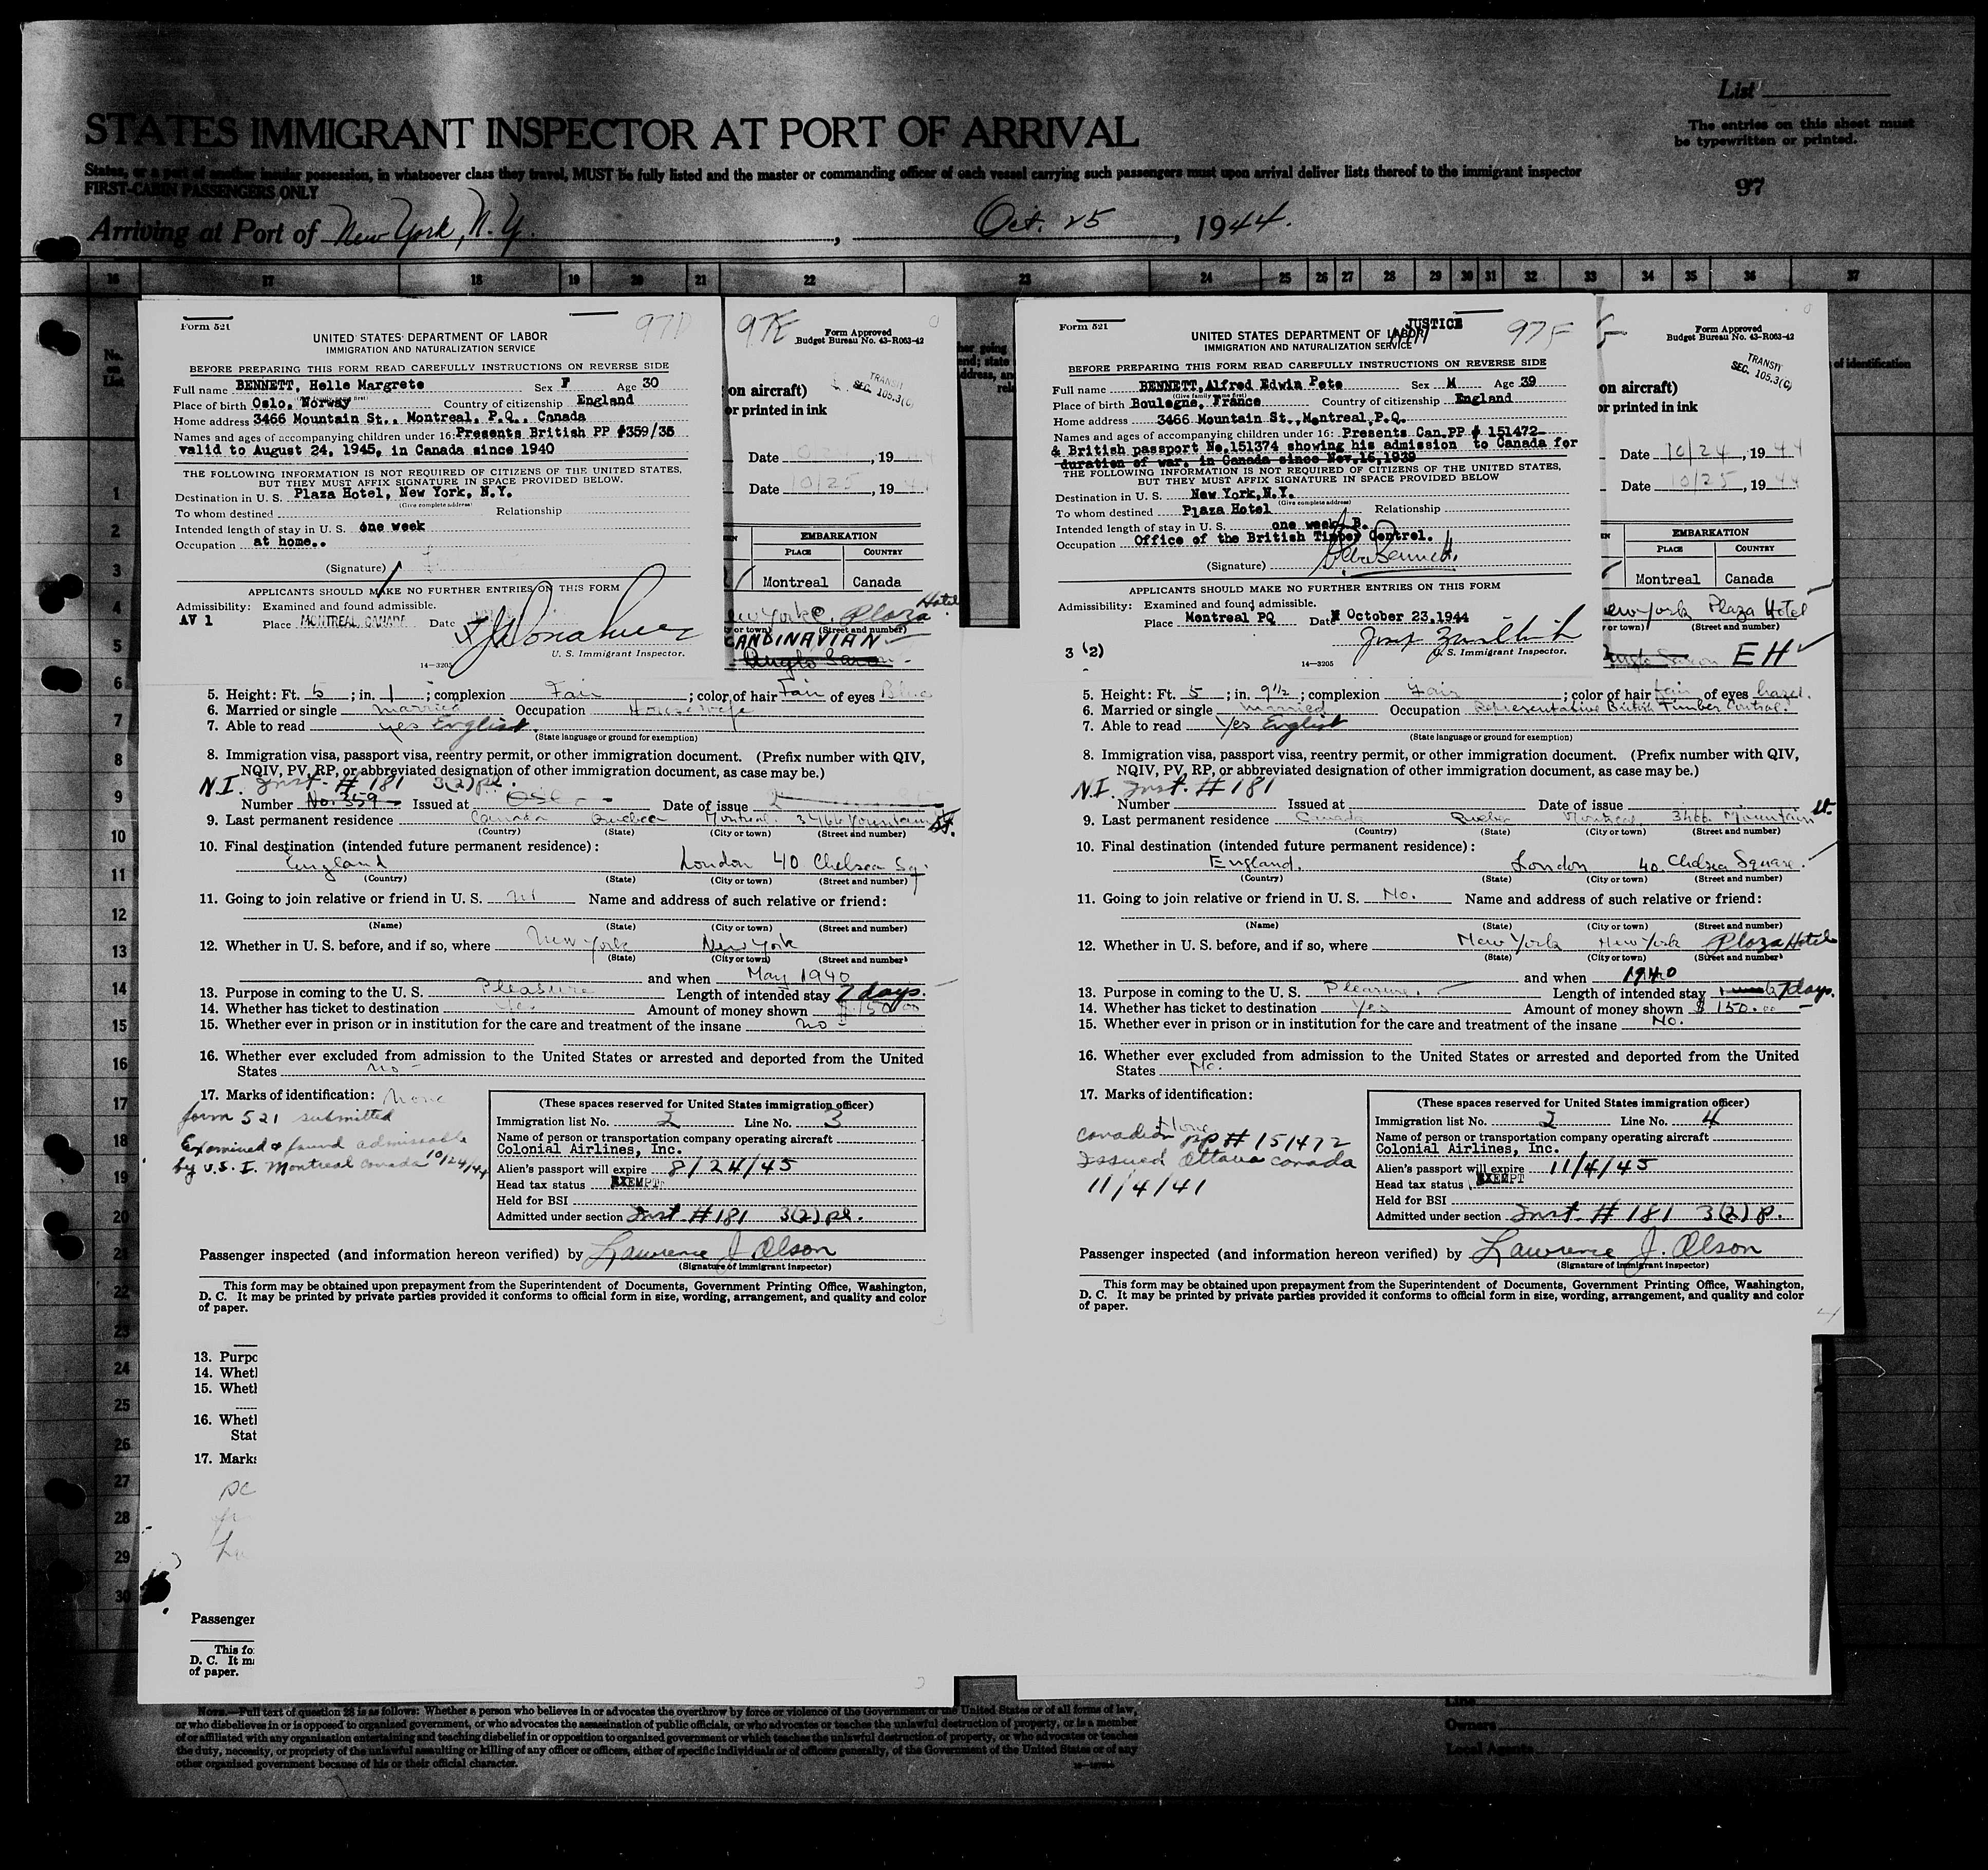 List
STATES IMMIGRANT INSPECTOR AT PORT OF ARRIVAL
The entries on this sheet must
be typewritten or printed.
States, or a part of another insular possession, in whatsoever class they travel, MUST be fully listed and the master or commanding officer of each vessel carrying such passengers must upon arrival deliver lists thereof to the immigrant inspector
FIRST-CABIN PASSENGERS ONLY
97
Arriving at Port of New York, N.Y. , Oct. 25 , 1944.
16 17 18 19 20 21 22 23 24 25 26 27 28 29 30 31 32 33 34 35 36 37
No. on List
1
2
3
4
5
6
7
8
9
10
11
12
13
14
15
16
17
18
19
20
21
22
23
24
25
26
27
28
29
30
Form 521
97D
UNITED STATES DEPARTMENT OF LABOR
IMMIGRATION AND NATURALIZATION SERVICE
BEFORE PREPARING THIS FORM READ CAREFULLY INSTRUCTIONS ON REVERSE SIDE
Full name BENNETT, Helle Margrete Sex F Age 30
Place of birth Oslo, Norway Country of citizenship England
Home address 3466 Mountain St., Montreal, P.Q., Canada
Names and ages of accompanying children under 16: Presents British PP #359/35
valid to August 24, 1945, in Canada since 1940
THE FOLLOWING INFORMATION IS NOT REQUIRED OF CITIZENS OF THE UNITED STATES,
BUT THEY MUST AFFIX SIGNATURE IN SPACE PROVIDED BELOW.
Destination in U. S. Plaza Hotel, New York, N.Y.
(Give complete address)
To whom destined Relationship
Intended length of stay in U. S. one week
Occupation at home..
(Signature)
APPLICANTS SHOULD MAKE NO FURTHER ENTRIES ON THIS FORM
Admissibility: Examined and found admissible.
AV 1 Place MONTREAL, CANADA Date
U. S. Immigrant Inspector.
14—3205
97E
Form Approved
Budget Bureau No. 43-R063-42
TRANSIT
SEC. 105.3(C)
on aircraft)
or printed in ink
Date , 19
Date 10/25 , 19 44
EMBARKATION
PLACE COUNTRY
Montreal Canada
ew York Plaza Hotel
or town) (Street and number)
ANDINAVIAN
Anglo Saxon
5. Height: Ft. 5 ; in. 1 ; complexion Fair ; color of hair Fair of eyes Blue
6. Married or single married Occupation Housewife
7. Able to read yes English
(State language or ground for exemption)
8. Immigration visa, passport visa, reentry permit, or other immigration document. (Prefix number with QIV,
NQIV, PV, RP, or abbreviated designation of other immigration document, as case may be.)
N.I. Inst. # 181 3(2)pl.
Number No. 359 Issued at Oslo Date of issue
9. Last permanent residence Canada Quebec Montreal 3466 Mountain St.
(Country) (State) (City or town) (Street and number)
10. Final destination (intended future permanent residence):
England London 40 Chelsea Sq
(Country) (State) (City or town) (Street and number)
11. Going to join relative or friend in U. S. Name and address of such relative or friend:
(Name) (State) (City or town) (Street and number)
12. Whether in U. S. before, and if so, where New York New York
(State) (City or town) (Street and number)
and when May 1940
13. Purpose in coming to the U. S. Pleasure Length of intended stay 7 days.
14. Whether has ticket to destination Yes Amount of money shown $150.00
15. Whether ever in prison or in institution for the care and treatment of the insane no
16. Whether ever excluded from admission to the United States or arrested and deported from the United
States no
17. Marks of identification: None
form 521 submitted
Examined & found admissable
by U.S.I. Montreal Canada 10/24/44
(These spaces reserved for United States immigration officer)
Immigration list No. 2 Line No. 3
Name of person or transportation company operating aircraft
Colonial Airlines, Inc.
Alien's passport will expire 8/24/45
Head tax status EXEMPT
Held for BSI
Admitted under section Inst. #181 3(2)pl.
Passenger inspected (and information hereon verified) by Lawrence J. Olson
(Signature of immigrant inspector)
This form may be obtained upon prepayment from the Superintendent of Documents, Government Printing Office, Washington,
D. C. It may be printed by private parties provided it conforms to official form in size, wording, arrangement, and quality and color
of paper.
13. Purpo
14. Wheth
15. Wheth
16. Wheth
Stat
17. Marks
Passenger
This fo
D. C. It m
of paper.
of identification
Form 521
97F
UNITED STATES DEPARTMENT OF LABOR JUSTICE
IMMIGRATION AND NATURALIZATION SERVICE
BEFORE PREPARING THIS FORM READ CAREFULLY INSTRUCTIONS ON REVERSE SIDE
Full name BENNETT, Alfred Edwin Pete Sex M Age 39
(Give family name first)
Place of birth Boulogne, France Country of citizenship England
Home address 3466 Mountain St., Montreal, P.Q.
Names and ages of accompanying children under 16: Presents Can.PP # 151472
& British passport No.151374 showing his admission to Canada for
duration of war. in Canada since Nov.16,1939
THE FOLLOWING INFORMATION IS NOT REQUIRED OF CITIZENS OF THE UNITED STATES,
BUT THEY MUST AFFIX SIGNATURE IN SPACE PROVIDED BELOW
Destination in U. S. New York, N.Y.
(Give complete address)
To whom destined Plaza Hotel Relationship
Intended length of stay in U. S. one week
Occupation Office of the British Timber Control.
(Signature)
APPLICANTS SHOULD MAKE NO FURTHER ENTRIES ON THIS FORM
Admissibility: Examined and found admissible.
Place Montreal PQ Date October 23,1944
3 (2)
U. S. Immigrant Inspector.
14—3205
Form Approved
Budget Bureau No. 43-R063-42
TRANSIT
SEC. 105.3(C)
on aircraft)
or printed in ink
Date 10/24 , 19 44
Date 10/25 , 19 44
EMBARKATION
PLACE COUNTRY
Montreal Canada
ew York Plaza Hotel
or town) (Street and number)
Anglo Saxon EH
5. Height: Ft. 5 ; in. 9½ ; complexion Fair ; color of hair fair of eyes hazel.
6. Married or single married Occupation Representative British Timber Control.
7. Able to read Yes English
(State language or ground for exemption)
8. Immigration visa, passport visa, reentry permit, or other immigration document. (Prefix number with QIV,
NQIV, PV, RP, or abbreviated designation of other immigration document, as case may be.)
N.I. Inst. # 181
Number Issued at Date of issue
9. Last permanent residence Canada Quebec Montreal 3466 Mountain St.
(Country) (State) (City or town) (Street and number)
10. Final destination (intended future permanent residence):
England. London 40. Chelsea Square.
(Country) (State) (City or town) (Street and number)
11. Going to join relative or friend in U. S. No. Name and address of such relative or friend:
(Name) (State) (City or town) (Street and number)
12. Whether in U. S. before, and if so, where New York New York Plaza Hotel
(State) (City or town) (Street and number)
and when 1940
13. Purpose in coming to the U. S. Pleasure. Length of intended stay 1 week 7 days.
14. Whether has ticket to destination Yes Amount of money shown $ 150.00
15. Whether ever in prison or in institution for the care and treatment of the insane No.
16. Whether ever excluded from admission to the United States or arrested and deported from the United
States No.
17. Marks of identification:
None
Canadian PP # 151472
Issued Ottawa Canada
11/4/41
(These spaces reserved for United States immigration officer)
Immigration list No. 2 Line No. 4
Name of person or transportation company operating aircraft
Colonial Airlines, Inc.
Alien's passport will expire 11/4/45
Head tax status EXEMPT
Held for BSI
Admitted under section Inst. # 181 3(2)p.
Passenger inspected (and information hereon verified) by Lawrence J. Olson
(Signature of immigrant inspector)
This form may be obtained upon prepayment from the Superintendent of Documents, Government Printing Office, Washington,
D. C. It may be printed by private parties provided it conforms to official form in size, wording, arrangement, and quality and color
of paper.
NOTE.—Full text of question 28 is as follows: Whether a person who believes in or advocates the overthrow by force or violence of the Government of the United States or of all forms of law,
or who disbelieves in or is opposed to organized government, or who advocates the assassination of public officials, or who advocates or teaches the unlawful destruction of property, or is a member
of or affiliated with any organization entertaining and teaching disbelief in or opposition to organized government or which teaches the unlawful destruction of property, or who advocates or teaches
the duty, necessity, or propriety of the unlawful assaulting or killing of any officer or officers, either of specific individuals or of officers generally, of the Government of the United States or of any
other organized government because of his or their official character.
Line
Owners
Local Agents